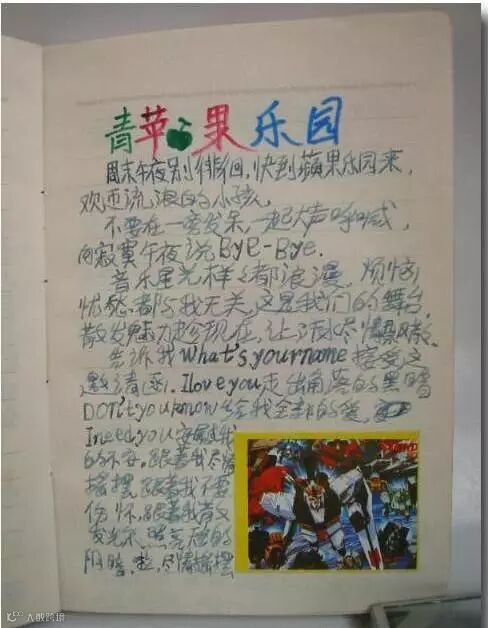 青苹果乐园
周末午夜别徘徊，快到蘋果乐园来，
欢迎流浪的小孩，
不要在一旁发呆，一起大声呼喊，
向寂寞午夜说BYE-BYE.
音乐星光样样都浪漫，烦恼
忧愁都与我无关，这是我们的舞台，
散发魅力趁现在，让汗水尽情飘散。
告诉我what's your name接受这
邀请函，I love you 走出角落的黑暗
DON't you know 给我全部的爱，
I need you 安慰我
的不安。跟着我尽情
摇摆，跟着我不要
伤怀，跟着我有又
发光，照亮
阴暗，啦，尽情摇摆
大数跨境